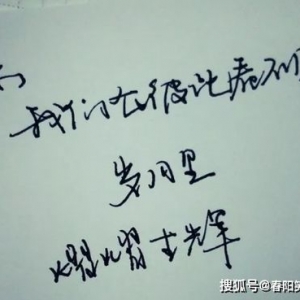 我们在彼此看不
岁月里
熠熠生辉
搜狐号@春阳